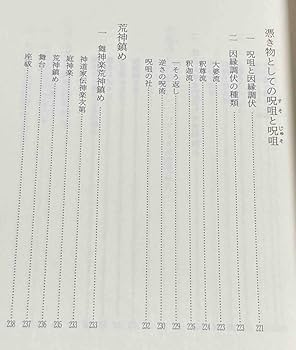 憑き物としての呪咀と呪咀
すそ
じゅそ
一 呪咀と因縁調伏 221
二 因縁調伏の種類 223
大要流 223
釈尊流 224
釈迦流 226
一そう返し 229
逆さの呪術 230
呪咀の社 232
荒神鎮め
一 舞神楽荒神鎮め 233
神道家伝神楽次第 233
庭神楽 235
荒神鎮め 236
舞台 237
座祓 238